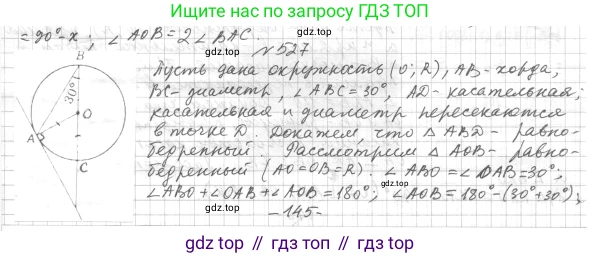 Ищите нас по запросу ГДЗ ТОП
= 90°-x; ∠AOB = 2∠BAC.
№527
Пусть дана окружность (O; R), AB - хорда,
BC - диаметр, ∠ABC = 30°, AD - касательная;
касательная и диаметр пересекаются
в точке D. Докажем, что △ABD - равно-
бедренный. Рассмотрим △AOB - равно-
бедренный (AO=OB=R). ∠ABO = ∠OAB = 30°;
∠ABO + ∠OAB + ∠AOB = 180°; ∠AOB = 180° - (30° + 30°);
B
30°
O
A
C
-145-
gdz top // гдз топ // gdz.top // гдз.топ